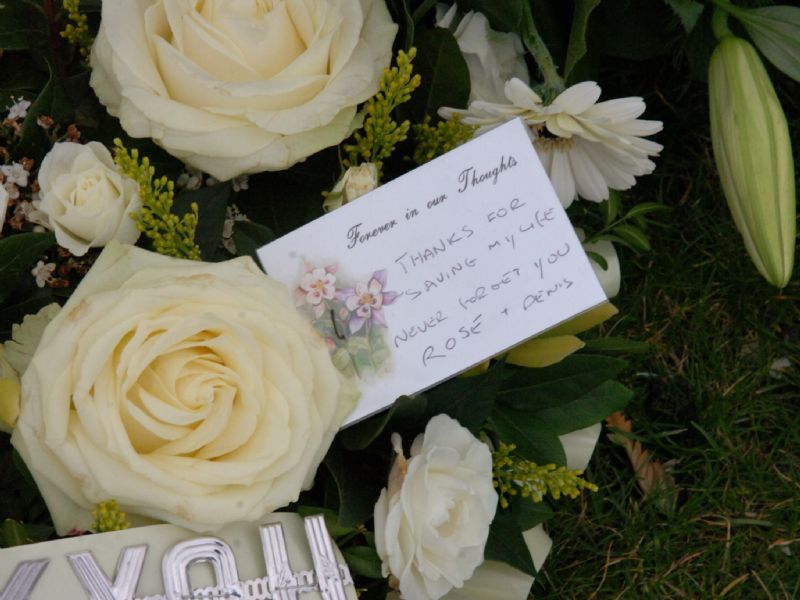 Forever in our Thoughts
THANKS FOR
SAVING MY LIFE
NEVER FORGET YOU
ROSÉ + DENIS